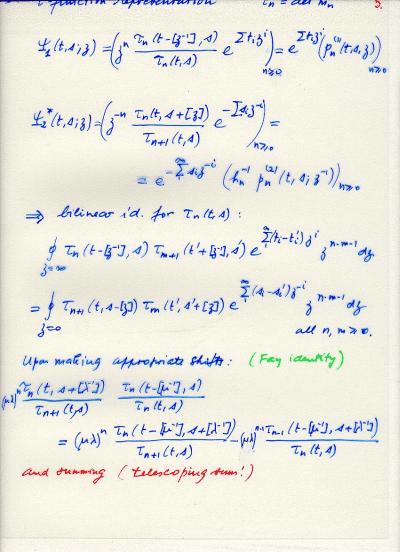 τ function representation τₙ = det mₙ 3.
Ψ₁(t,s;z) = (zⁿ τₙ(t-[z⁻¹],s)/τₙ(t,s) e^{Σtᵢzⁱ})_{n≥0} = e^{Σtᵢzⁱ}(pₙ⁽¹⁾(t,s,z))_{n≥0}
Ψ₂*(t,s;z) = (z⁻ⁿ τₙ(t,s+[z])/τₙ₊₁(t,s) e^{-Σsᵢz⁻ⁱ})_{n≥0} =
= e^{-Σ₁^∞ sᵢz⁻ⁱ} (hₙ⁻¹ pₙ⁽²⁾(t,s;z⁻¹))_{n≥0}
⇒ bilinear id. for τₙ(t,s) :
∮_{z=∞} τₙ(t-[z⁻¹],s) τₘ₊₁(t'+[z⁻¹],s') e^{Σ₁^∞(tᵢ-tᵢ')zⁱ} z^{n-m-1} dz
= ∮_{z=0} τₙ₊₁(t,s-[z]) τₘ(t',s'+[z]) e^{Σ₁^∞(sᵢ-sᵢ')z⁻ⁱ} z^{n-m-1} dz
all n, m ≥ 0.
Upon making appropriate shifts: (Fay identity)
(μλ)ⁿ τₙ(t,s+[λ⁻¹])/τₙ₊₁(t,s) τₙ(t-[μ⁻¹],s)/τₙ(t,s)
= (μλ)ⁿ τₙ(t-[μ⁻¹],s+[λ⁻¹])/τₙ₊₁(t,s) - (μλ)ⁿ⁻¹ τₙ₋₁(t-[μ⁻¹],s+[λ⁻¹])/τₙ(t,s)
and summing (telescoping sum!)